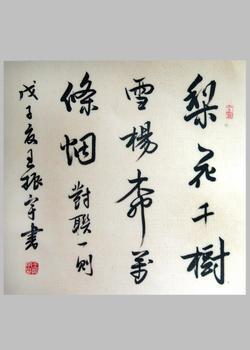 梨花千樹
雪楊柳萬
條烟對聯一則
戊子夏王振宇書